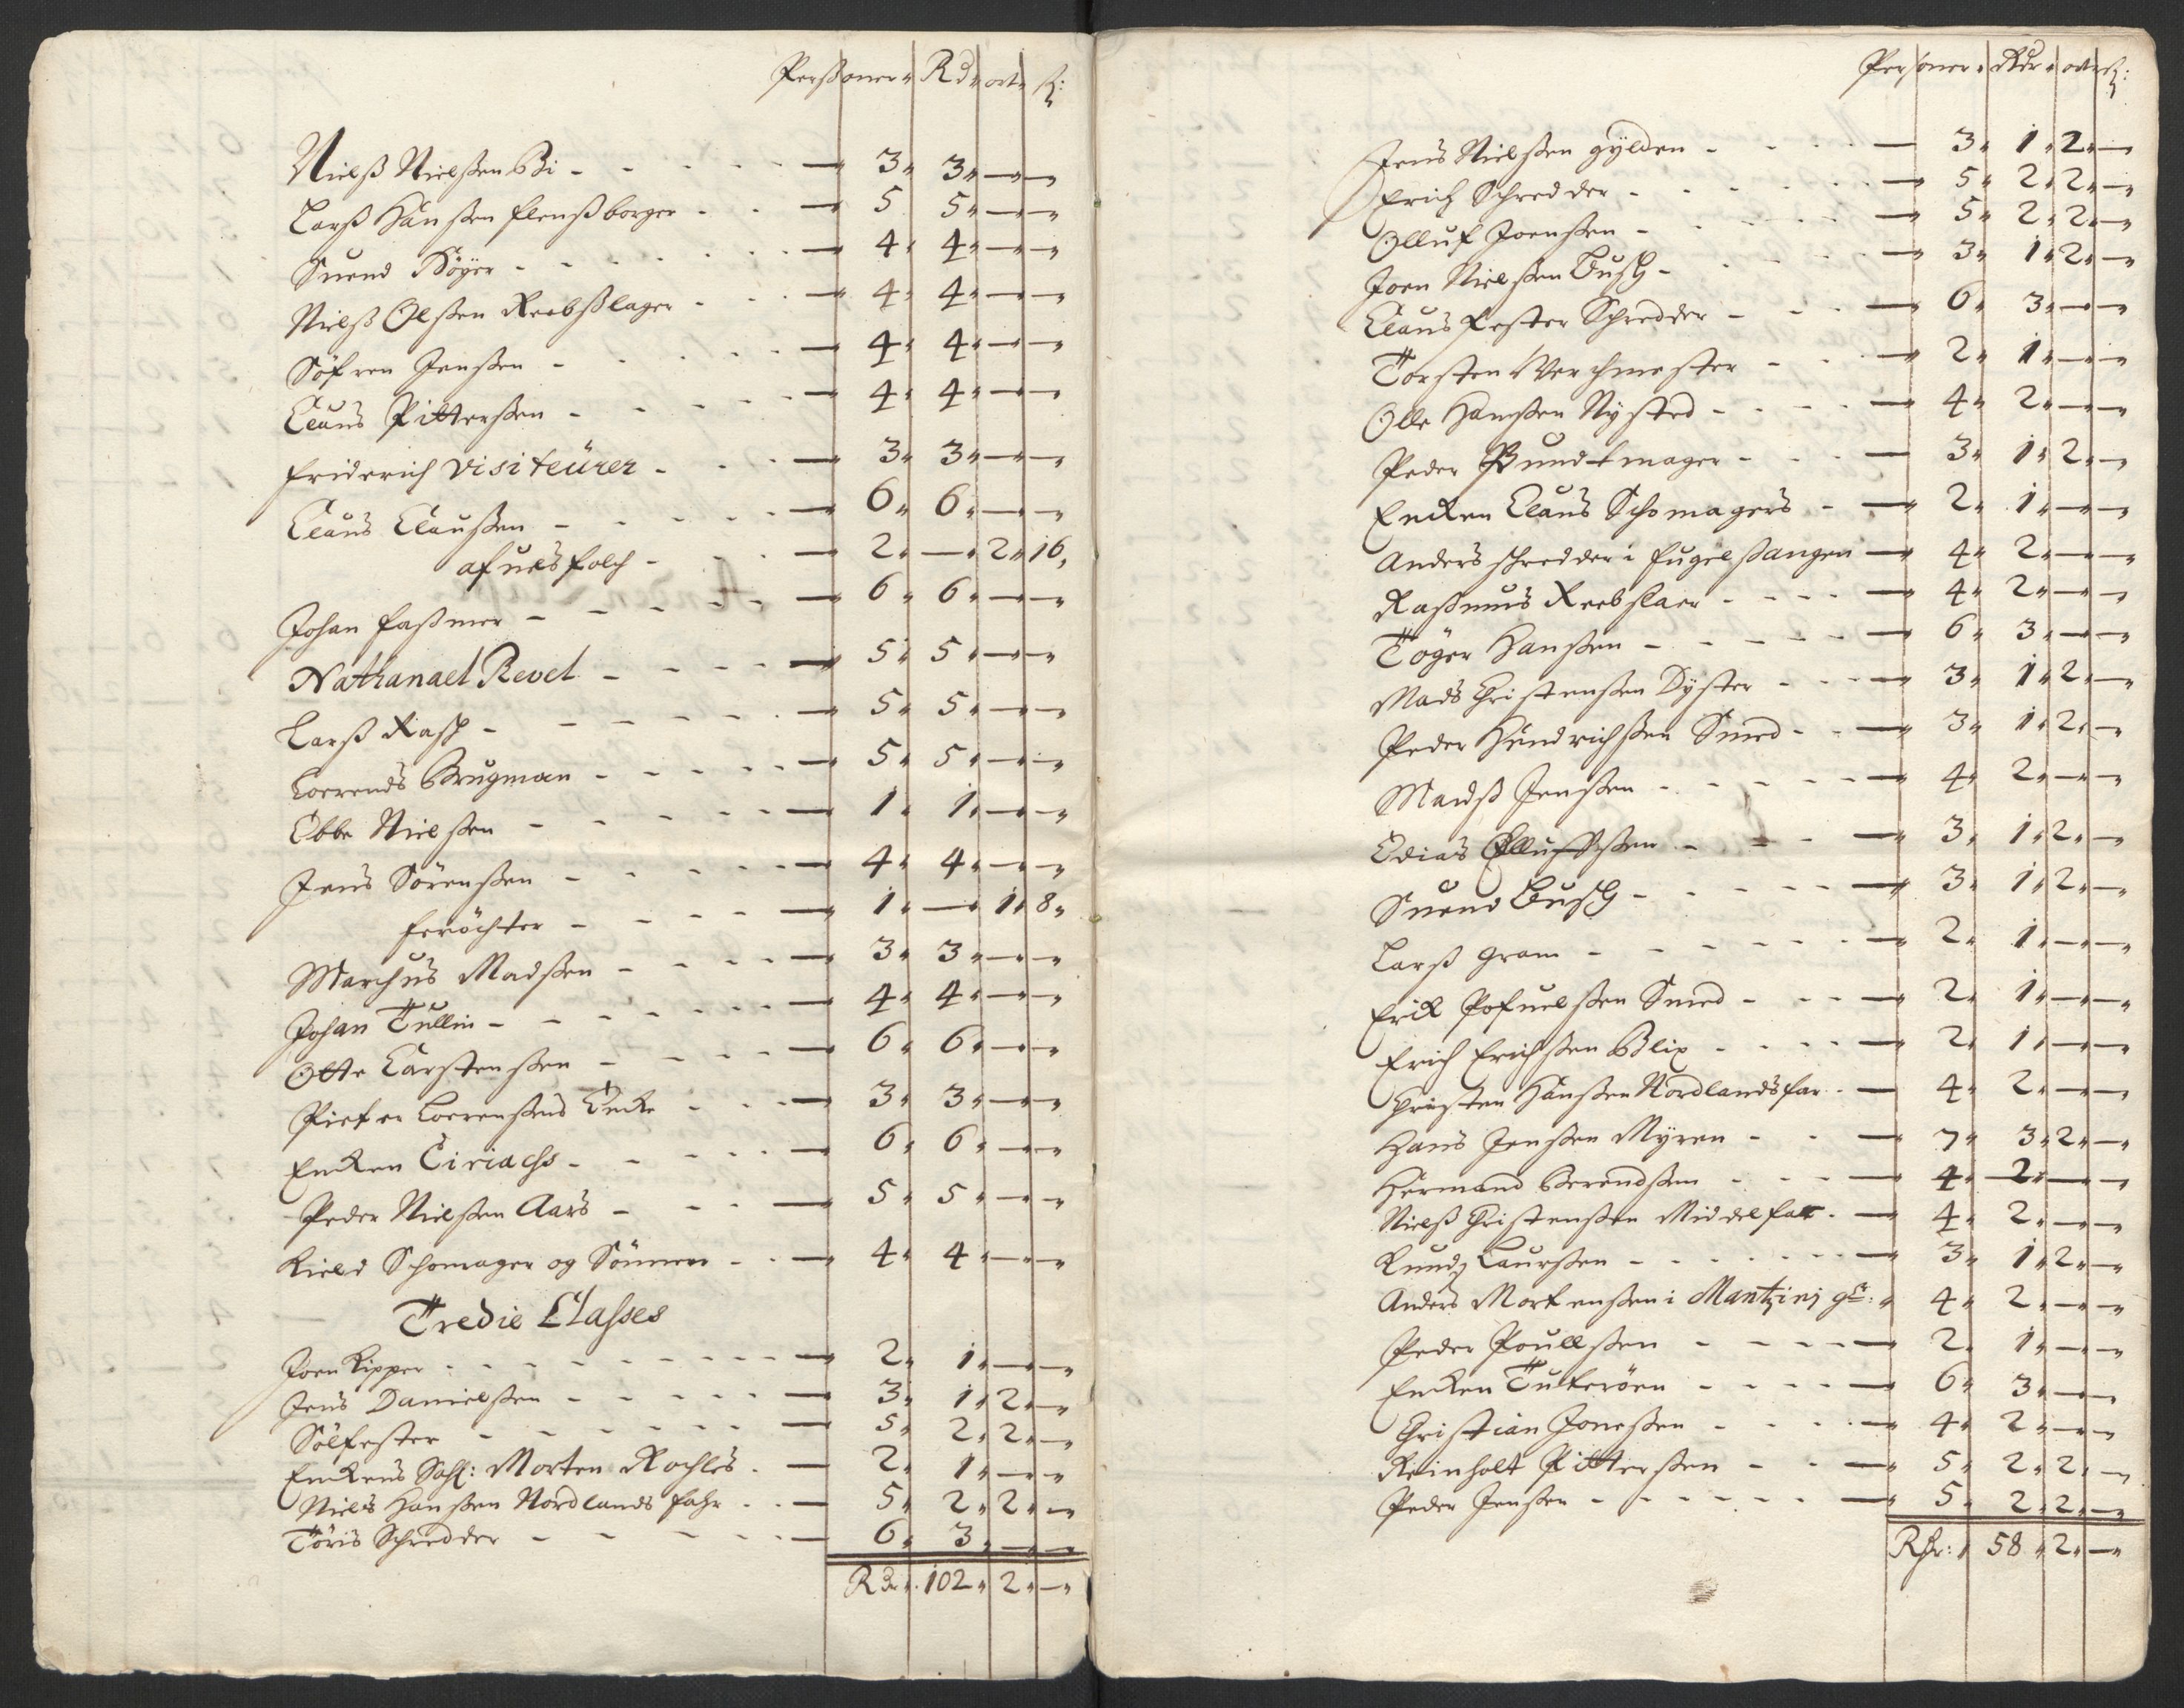 Perßoner Rd ort ß:
Nielß Nielßen Bi - 3 3 — —
Larß Hanßen flensborger - 5 5 — —
Suend Böyer - 4 4 — —
Nielß Olßen Reebßlager - 4 4 — —
Söfren Jenßen - 4 4 — —
Claus Pitterßen - 4 4 — —
friderich visiteürer - 3 3 — —
Claus Claußen - 6 6 — —
folch - 2 — 2 16
Johan faßmer - 6 6 — —
Nathanael Revel - 5 5 — —
Larß Rasch - 5 5 — —
Loerends Brugman - 5 5 — —
Ebbe Nielßen - 1 1 — —
Jens Sörenßen - 4 4 — —
feröchter - 1 — 1 8
Marchus Madßen - 3 3 — —
Johan Tullin - 4 4 — —
Otte Carstenßen - 6 6 — —
Pieter Loerenßens Encke - 3 3 — —
Encken Ciriachs - 6 6 — —
Peder Nielßen Aars - 5 5 — —
Kield Schomager og Sönnen - 4 4 — —
Tredie Classes
Joen Kipper - 2 1 — —
Jens Danielßen - 3 1 2 —
Sölfester - 5 2 2 —
Enckens Sahl: Morten Rochles - 2 1 — —
Niels Hanßen Nordlands fahr - 5 2 2 —
Töris Schredder - 6 3 — —
Rdr 102 2 —
Personer Rdr ort ß:
Jens Nielßen gylden - 3 1 2 —
Erich Schredder - 5 2 2 —
Olluf Joenßen - 5 2 2 —
Joen Nielßen Busch - 3 1 2 —
Claus fester Schredder - 6 3 — —
Torsten Werchmester - 2 1 — —
Olle Hanßen Nysted - 4 2 — —
Peder Bundtmager - 3 1 2 —
Encken Claus Schomagers - 2 1 — —
Anders schredder i fugelßangen - 4 2 — —
Raßmus Reebslaer - 4 2 — —
Töger Hanßen - 6 3 — —
Mads Christenßen Dyster - 3 1 2 —
Peder Hendrichßen Smed - 3 1 2 —
Madß Jenßen - 4 2 — —
Edias Ellufßen - 3 1 2 —
Suend Busch - 3 1 2 —
Larß gram - 2 1 — —
Erick Pofuelßen Smed - 2 1 — —
Erich Erichßen Blix - 2 1 — —
Christen Hanßen Nordlandsfar - 4 2 — —
Hans Jenßen Myren - 7 3 2 —
Hermand Berendßen - 4 2 — —
Nielß Christenßen Middelfar - 4 2 — —
Knud Laurßen - 3 1 2 —
Anders Mortenßen i Mantzinj gr: 4 2 — —
Peder Poullßen - 2 1 — —
Encken Tuteröen - 6 3 — —
Christian Joneßen - 4 2 — —
Reinholt Pitterßen - 5 2 2 —
Peder Jenßen - 5 2 2 —
Rdr: 58 2 —